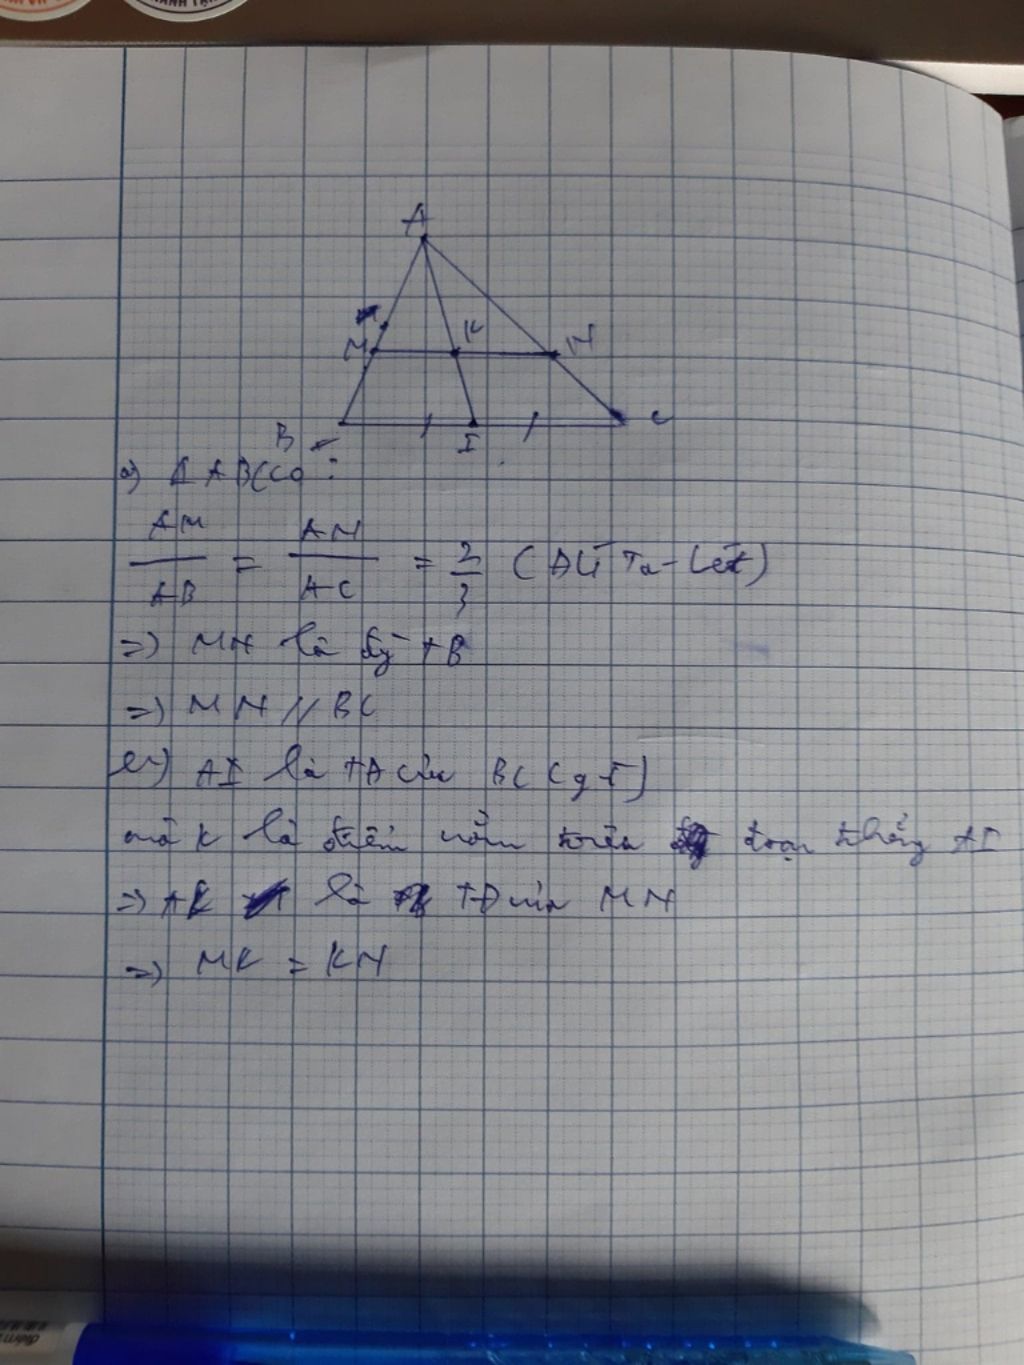 A
M
K
N
B
I
C
a) Δ ABC có :
AM/AB = AN/AC = 2/3 (ĐL Ta-lét)
=> MN là đg TB
=> MN // BC
AI là TĐ của BC (gT)
mà K là điểm nằm trên đoạn thẳng AI
=> AK là TĐ của MN
=> MK = KN